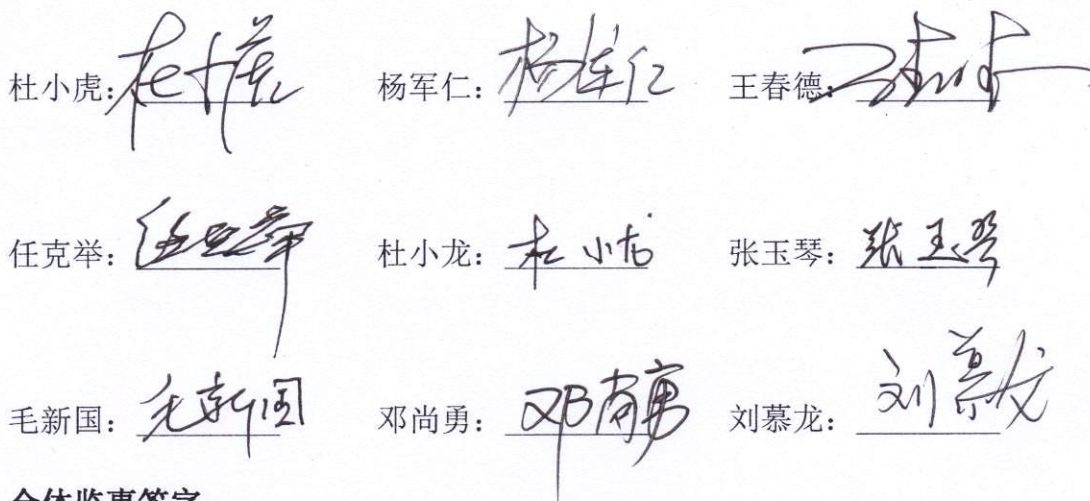 杜小虎：杜小虎 杨军仁：杨军仁 王春德：王春德
任克举：任克举 杜小龙：杜小龙 张玉琴：张玉琴
毛新国：毛新国 邓尚勇：邓尚勇 刘慕龙：刘慕龙
全体监事签字